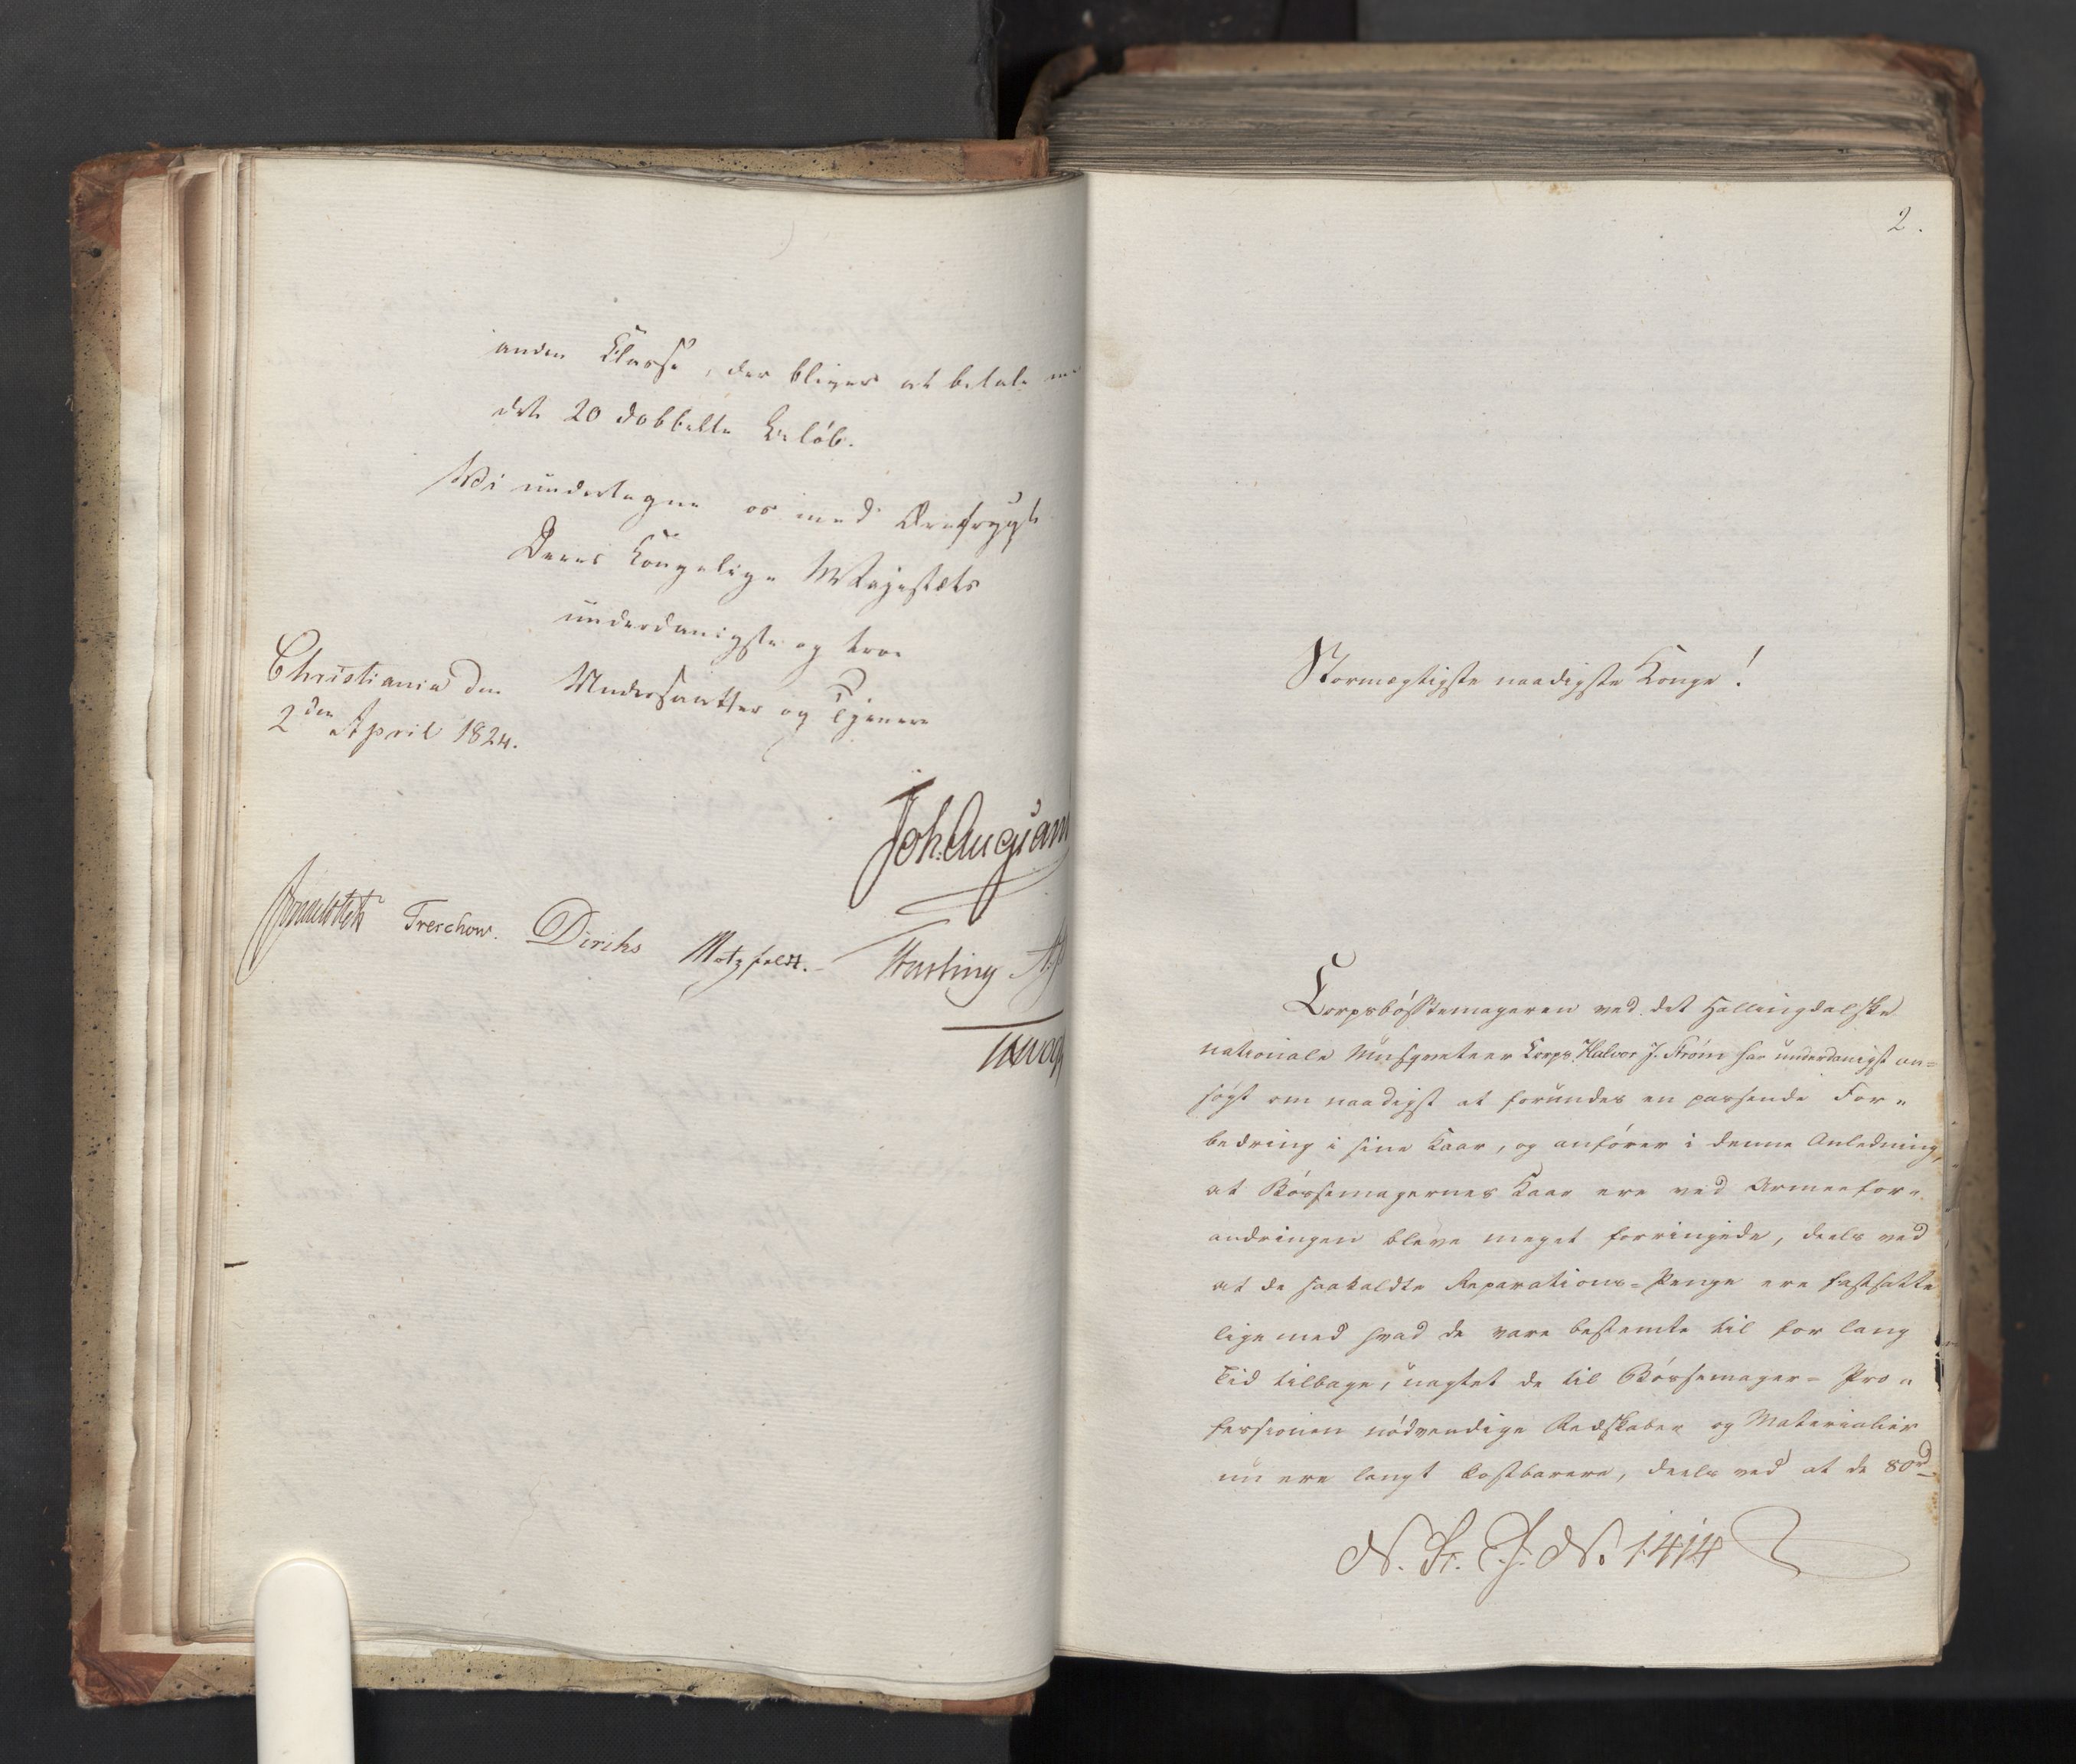 anden Klasse, der bliver at betale
det 20 dobbelte Beløb.
Wi undertegne os med Ærefrygt
Deres Kongelige Majestæts
underdanigste og troe
Undersaatter og Tjenere
Christiania den
2den April 1824.
Treschow. Diriks Motzfeldt. Hasting
2.
Stormægtigste naadigste Konge!
Corpsbössemageren ved det Hallingdalske
nationale Musqueteer Corps Halvor J. Ström har underdanigst an=
søgt om naadigst at forundes en passende For=
bedring i sine Kaar, og anfører i denne Anledning,
at Bössemagernes Kaar ere ved Armeefor=
andringen bleve meget forringede, deels ved
at de saakaldte Reparations=Penge ere fastsatte
lige med hvad de vare bestemte til for lang
Tid tilbage, uagtet de til Bössemager=Pro=
fessionen nödvendige Redskaber og Materialier
nu ere langt kostbarere, deels ved at de 80rd
N. St. J. N. 1414